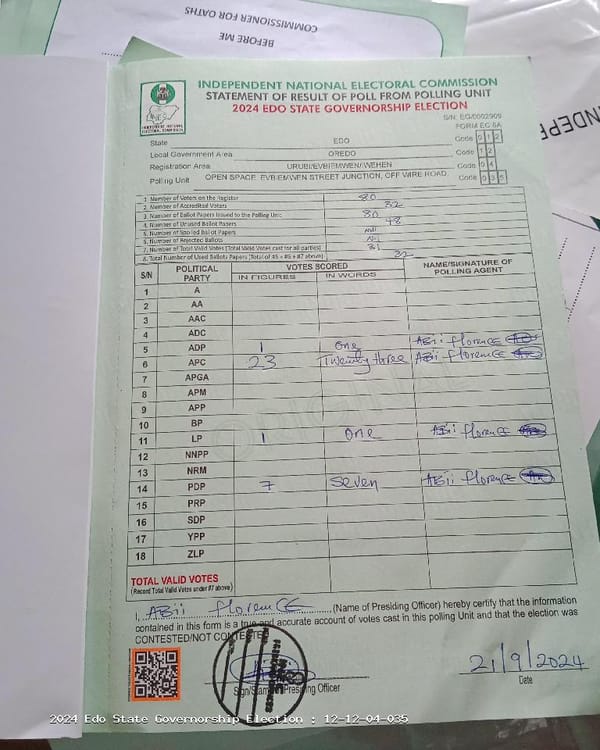 COMMISSIONER FOR OATHS
BEFORE ME
INDEPE
INDEPENDENT NATIONAL ELECTORAL COMMISSION
STATEMENT OF RESULT OF POLL FROM POLLING UNIT
2024 EDO STATE GOVERNORSHIP ELECTION
S/N: EG/0002909
FORM EC 8A
State EDO Code 1 2
Local Government Area OREDO Code 1 2
Registration Area URUBI/EVBIEMWEN/IWEHEN Code 0 4
Polling Unit OPEN SPACE, EVBIEMWEN STREET JUNCTION, OFF WIRE ROAD, Code 0 3 5
1. Number of Voters on the Register 80
2. Number of Accredited Voters 32
3. Number of Ballot Papers Issued to the Polling Unit 80
4. Number of Unused Ballot Papers 48
5. Number of Spoiled Ballot Papers
6. Number of Rejected Ballots
7. Number of Total Valid Votes (Total Valid Votes cast for all parties)
8. Total Number of Used Ballots Papers (Total of #5 + #6 + #7 above) 32
S/N POLITICAL PARTY VOTES SCORED NAME/SIGNATURE OF POLLING AGENT
IN FIGURES IN WORDS
1 A
2 AA
3 AAC
4 ADC
5 ADP 1 One ABii florenCE
6 APC 23 Twenty three ABii florenCE
7 APGA
8 APM
9 APP
10 BP
11 LP 1 One ABii florenCE
12 NNPP
13 NRM
14 PDP 7 Seven ABii florenCE
15 PRP
16 SDP
17 YPP
18 ZLP
TOTAL VALID VOTES
(Record Total Valid Votes under #7 above)
I, ABii florenCE (Name of Presiding Officer) hereby certify that the information
contained in this form is a true and accurate account of votes cast in this polling Unit and that the election was
CONTESTED/NOT CONTESTED
Sign/Stamp Presiding Officer
21/9/2024
Date
2024 Edo State Governorship Election : 12-12-04-035